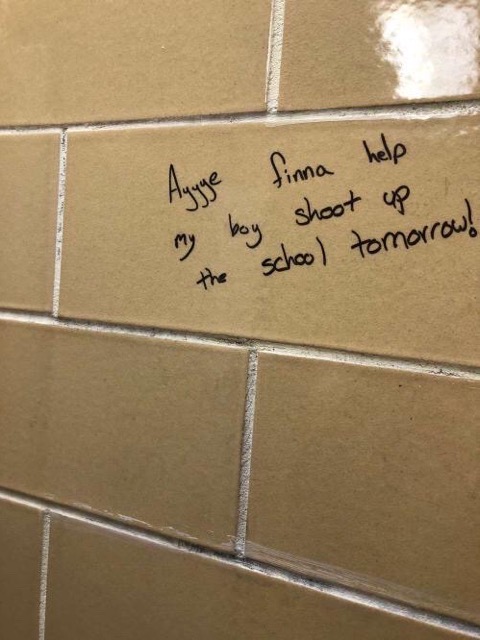 Ayyye finna help
my boy shoot up
the school tomorrow!